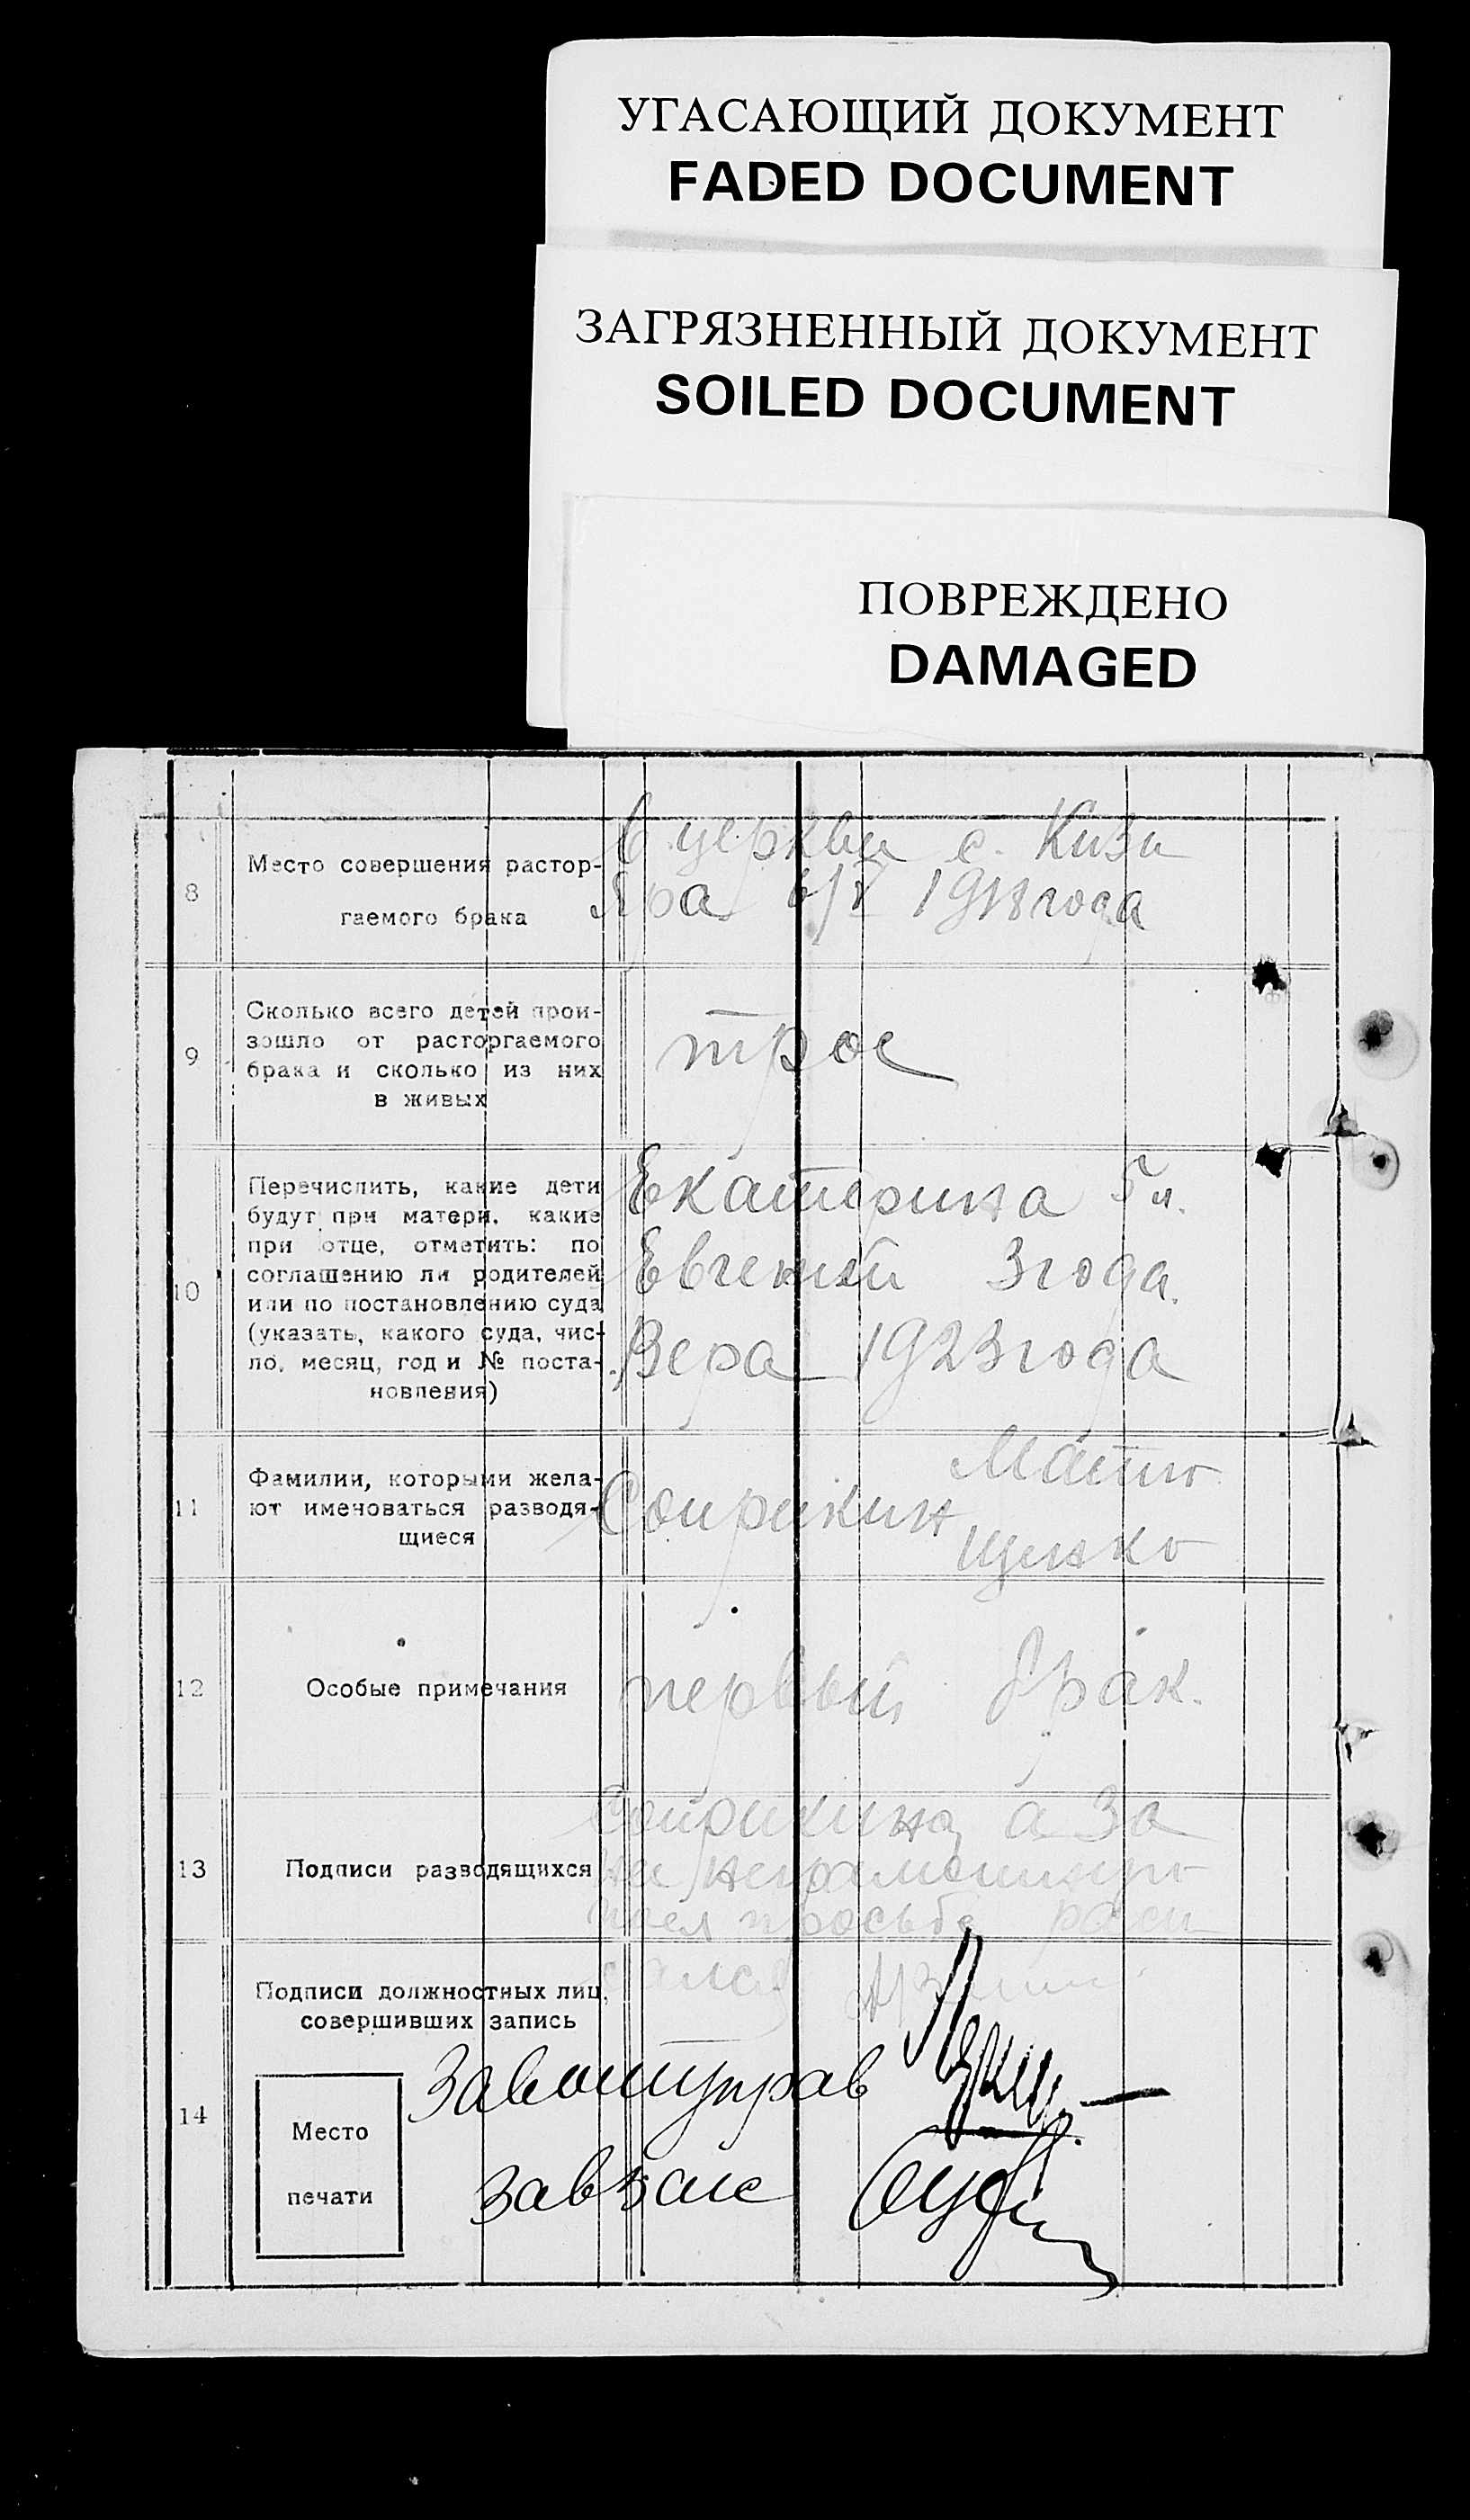 УГАСАЮЩИЙ ДОКУМЕНТ
FADED DOCUMENT
ЗАГРЯЗНЕННЫЙ ДОКУМЕНТ
SOILED DOCUMENT
ПОВРЕЖДЕНО
DAMAGED
8
Место совершения растор-
гаемого брака
В церкви с. Кизи
Яра 6/V 1918 года
9
Сколько всего детей прои-
зошло от расторгаемого
брака и сколько из них
в живых
трое
10
Перечислить, какие дети
будут при матери, какие
при отце, отметить: по
соглашению ли родителей
или по постановлению суда
(указать, какого суда, чис-
ло, месяц, год и № поста-
новления)
Екатерина 5
Евгений 3 года.
Вера 1923 года
11
Фамилии, которыми жела-
ют именоваться разводя-
щиеся
Сопрыкин
12
Особые примечания
первый брак.
13
Подписи разводящихся
а за
неграмотную
просьбе
14
Подписи должностных лиц,
совершивших запись
Место
печати
Завотуправ
завзагс